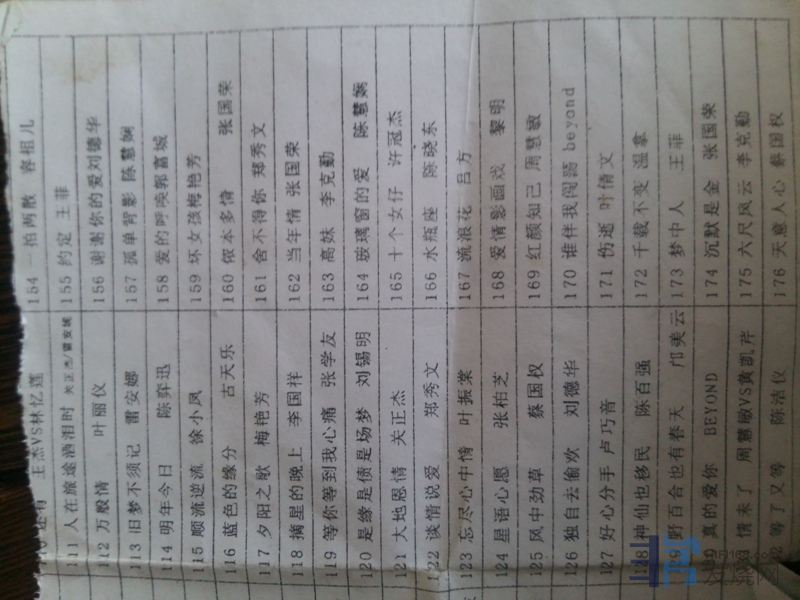 还有 王杰VS林忆莲
111 人在旅途洒泪时 关正杰/雷安娜
112 万般情 叶丽仪
113 旧梦不须记 雷安娜
114 明年今日 陈奕迅
115 顺流逆流 徐小凤
116 蓝色的缘分 古天乐
117 夕阳之歌 梅艳芳
118 摘星的晚上 李国祥
119 等你等到我心痛 张学友
120 是缘是债是场梦 刘锡明
121 大地恩情 关正杰
122 谈情说爱 郑秀文
123 忘尽心中情 叶振棠
124 星语心愿 张柏芝
125 风中劲草 蔡国权
126 独自去偷欢 刘德华
127 好心分手 卢巧音
128 神仙也移民 陈百强
野百合也有春天 邝美云
真的爱你 BEYOND
情未了 周慧敏VS黄凯芹
等了又等 陈洁仪
154 一拍两散 容祖儿
155 约定 王菲
156 谢谢你的爱刘德华
157 孤单背影 陈慧娴
158 爱的呼唤郭富城
159 坏女孩梅艳芳
160 侬本多情 张国荣
161 舍不得你 郑秀文
162 当年情 张国荣
163 高妹 李克勤
164 玻璃窗的爱 陈慧娴
165 十个女仔 许冠杰
166 水瓶座 陈晓东
167 流浪花 吕方
168 爱情影画戏 黎明
169 红颜知己 周慧敏
170 谁伴我闯荡 beyond
171 伤逝 叶倩文
172 千载不变 温拿
173 梦中人 王菲
174 沉默是金 张国荣
175 六尺风云 李克勤
176 天意人心 蔡国权